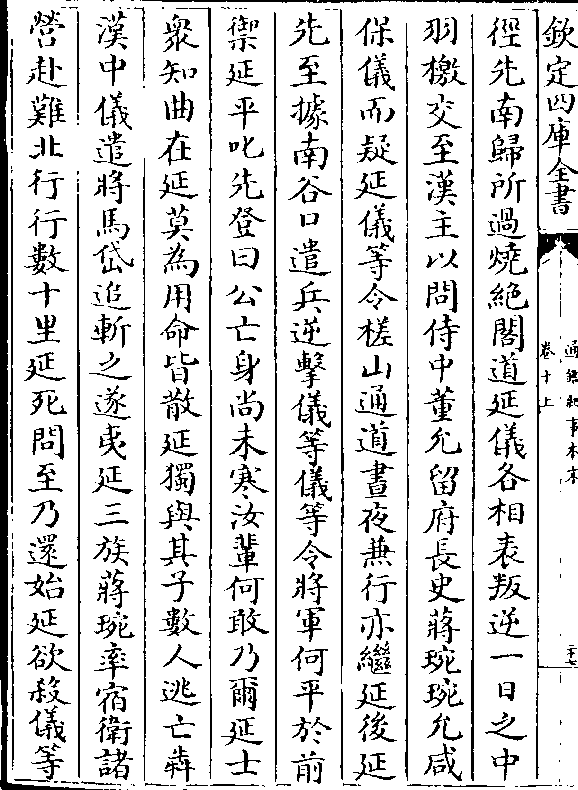 欽定四庫全書
通鑑紀事本末
卷十上
二十七
徑先南歸所過燒絶閣道延儀各相表叛逆一日之中
羽檄交至漢主以問侍中董允留府長史蔣琬琬允咸
保儀而疑延儀等令槎山通道晝夜兼行亦繼延後延
先至據南谷口遣兵逆擊儀等儀等令將軍何平於前
禦延平叱先登曰公亡身尚未寒汝輩何敢乃爾延士
衆知曲在延莫為用命皆散延獨與其子數人逃亡犇
漢中儀遣將馬岱追斬之遂夷延三族蔣琬率宿衛諸
營赴難北行行數十里延死問至乃還始延欲殺儀等